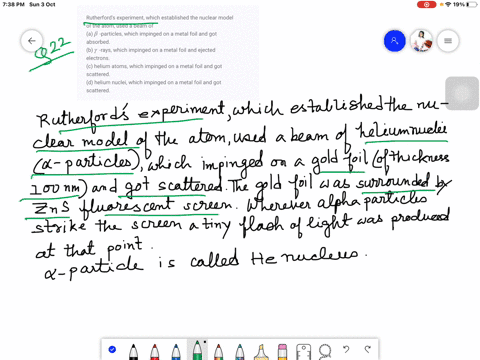 7:38 PM Sun 3 Oct
19%
Q 22
Rutherford's experiment, which established the nuclear model
of the atom, used a beam of
(a) β -particles, which impinged on a metal foil and got
absorbed.
(b) γ -rays, which impinged on a metal foil and ejected
electrons.
(c) helium atoms, which impinged on a metal foil and got
scattered.
(d) helium nuclei, which impinged on a metal foil and got
scattered.
Rutherford's experiment, which established the nu-
clear model of the atom, used a beam of helium nuclei
(α-particles), which impinged on a gold foil (of thickness
100 nm) and got scattered. The gold foil was surrounded by
ZnS fluorescent screen. Wherever alpha particles
strike the screen a tiny flash of light was produced
at that point.
α-particle is called He nucleus.